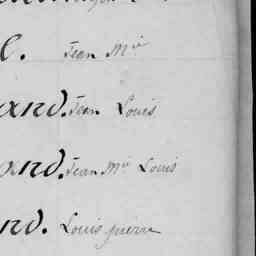 e. Jean M.ie
and. Jean Louis
and. Jean M.ie Louis
nd. Louis pierre